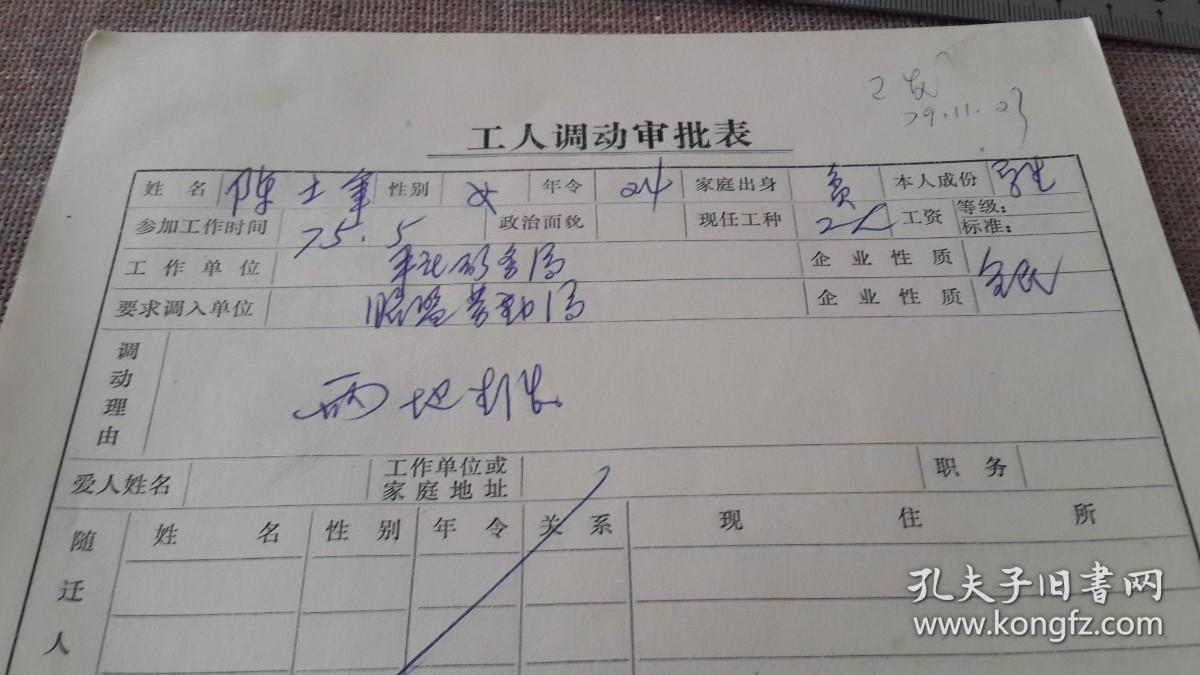 已发
79.11.23
工人调动审批表
姓名 陈士军 性别 女 年令 24 家庭出身 贫 本人成份 学生
参加工作时间 75.5 政治面貌 现任工种 工人 工资 等级： 标准：
工作单位 务局 企业性质
要求调入单位 昭盟劳动局 企业性质 全民
调动理由 两地
爱人姓名 工作单位或家庭地址 职务
随迁人 姓名 性别 年令 关系 现住所
孔夫子旧书网
www.kongfz.com